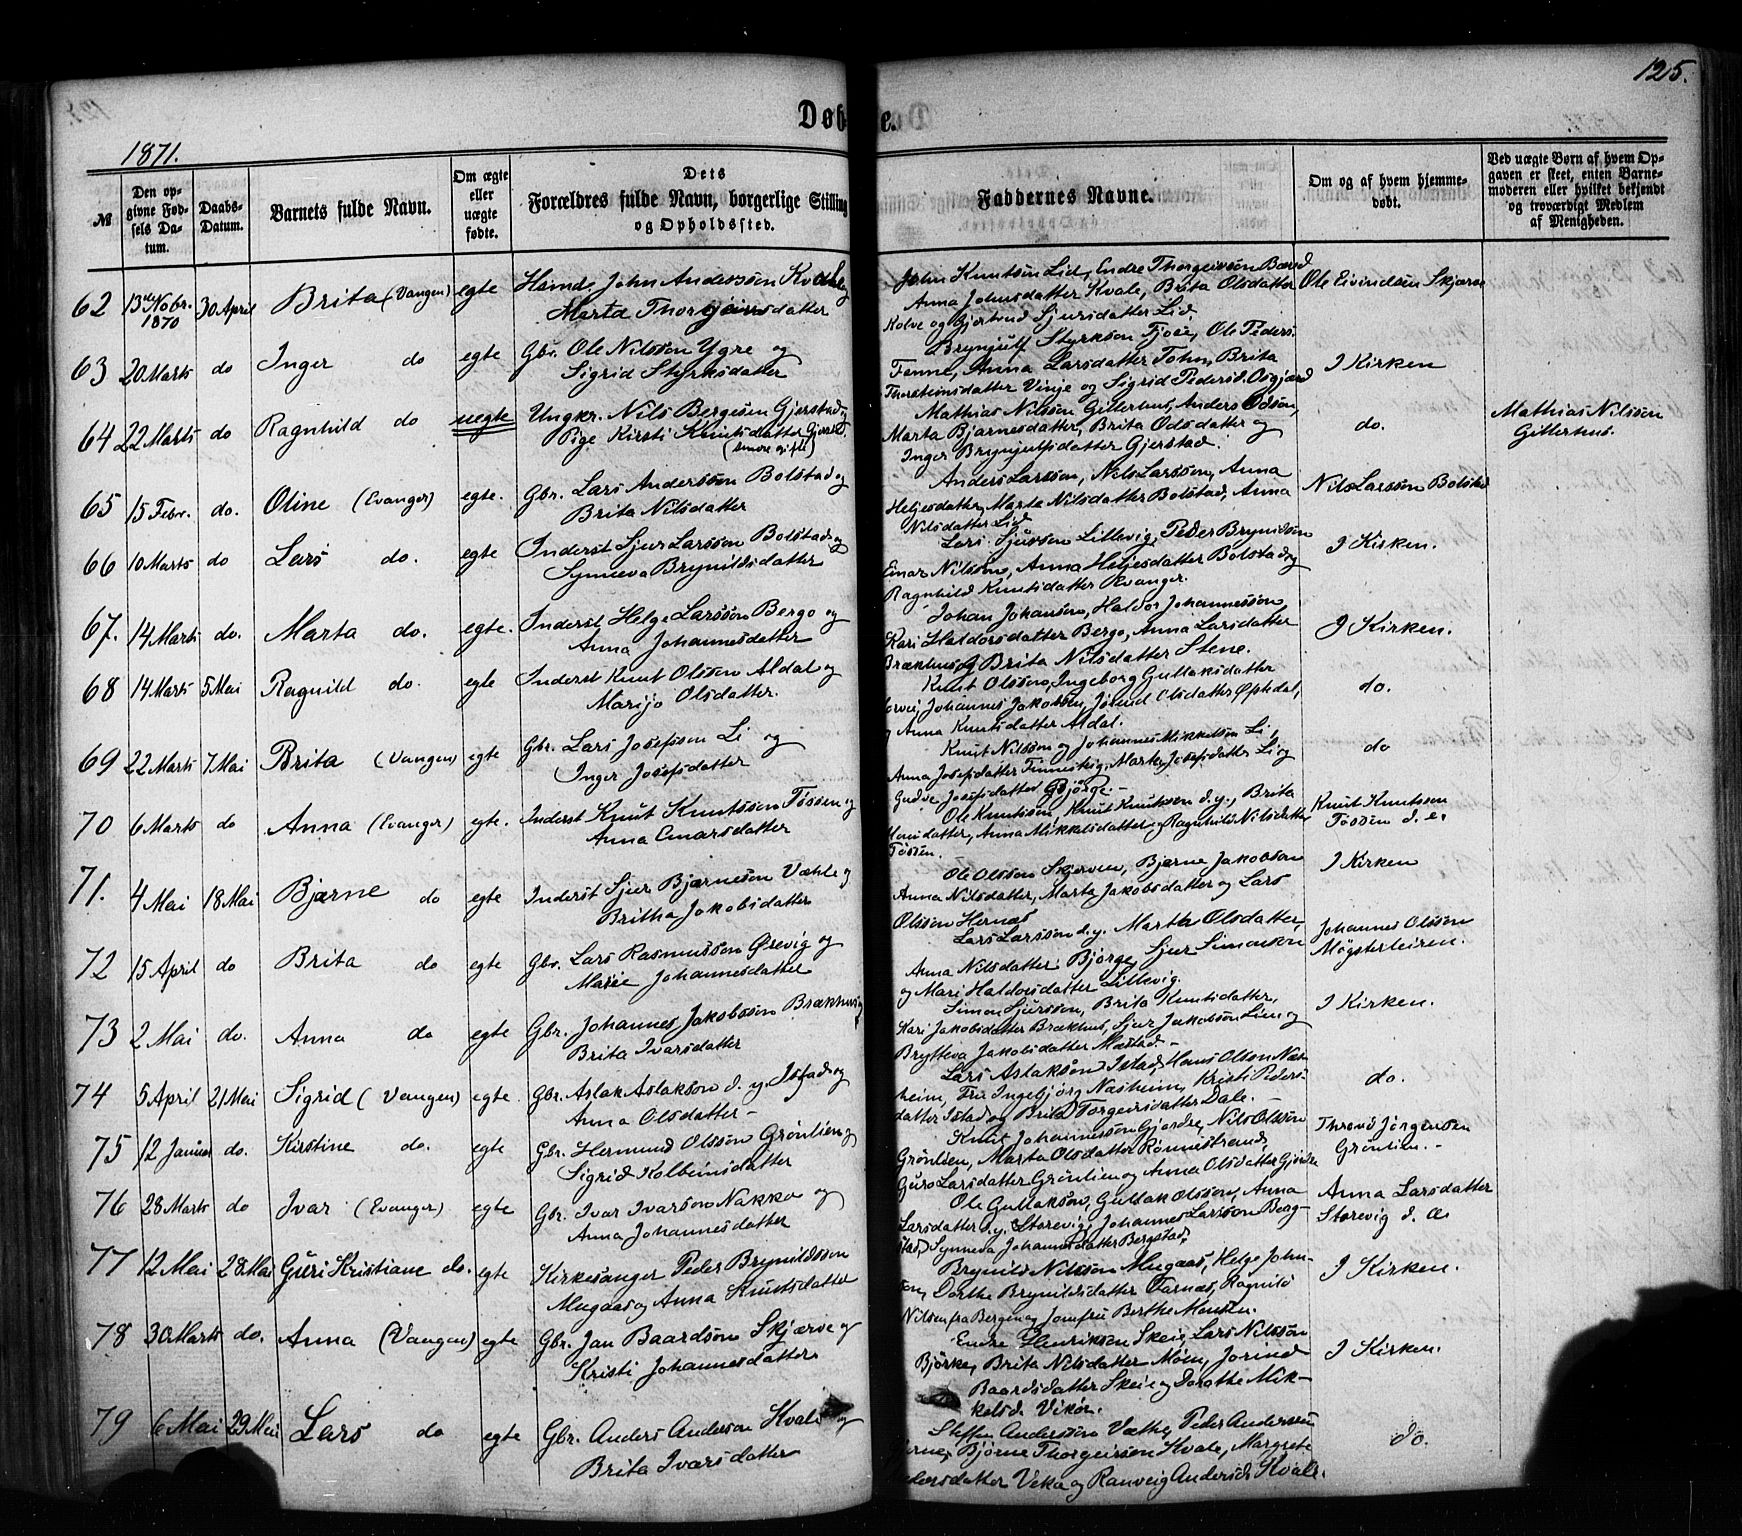 125.
Døbte.
1871.
№
Den opgivne Fødsels Datum.
Daabs-Datum.
Barnets fulde Navn.
Om ægte eller uægte fødte.
Dets Forældres fulde Navn, borgerlige Stilling og Opholdssted.
Faddernes Navne.
Om og af hvem hjemmedøbt.
Ved uægte Børn af hvem Opgaven er skeet, enten Barnemoderen eller hvilket bekjendt og troværdigt Medlem af Menigheden.
62 13de Nobr. 1870 30 April Brita (Vangen) egte
John Anderssøn Kvale
Marta Thorgeirsdatter
John Knutsøn Lid, Endre Thorgeirssøn
Anna Johnsdatter Kvale, Brita Olsdatter
Kolve og Gjertrud Sjursdatter Lid.
Ole Eivindsøn Skjerve
63 20 Marts do Inger do egte
Gbr. Ole Nilssøn Ygre og
Sigrid Styrksdatter
Brynjulf Styrksøn Fjose, Ole Peders.
Fenne, Anna Larsdatter, Brita
Vinje og Sigrid Pedersd.
I Kirken
64 22 Marts do Ragnhild do uegte
Ungkr. Nils Bergesøn Gjerstad og
Pige Kirsti Knutsdatter Gjerstad.
Mathias Nilssøn Gitlerhus, Anders Odsøn,
Marta Bjarnesdatter, Brita Odsdatter og
Inger Brynjulfsdatter Gjerstad.
do.
Mathias Nilssøn
Gitlerhus.
65 15 Febr. do. Oline (Evanger) egte.
Gbr. Lars Anderssøn Bolstad og
Brita Nilsdatter
Anders Larssøn, Nils Larssøn, Anna
Heljesdatter, Marta Nilsdatter Bolstad, Anna
Nilsdatter Lid
Nils Larssøn Bolstad
66 10 Marts do Lars do. egte
Inderst Sjur Larssøn Bolstad og
Synneva Brynildsdatter
Lars Sjurssøn Lillevig, Peder Brynildsøn
Einar Nilssøn, Anna Heljesdatter Bolstad og
Ragnhild Knutsdatter Evanger.
I Kirken.
67. 14 Marts do. Marta do. egte.
Inderst Helge Larssøn Berge og
Anna Johannesdatter
Johan Johansøn, Haldor Johannessøn
Kari Haldorsdatter Berge, Anna Larsdatter
Brækhus og Brita Nilsdatter Stene.
I Kirken.
68 14 Marts 5 Mai Ragnild do. egte
Inderst Knut Olssøn Aldal og
Marijo Olsdatter.
Knut Olssøn, Ingeborg Gullaksdatter
Johannes Jakobsen, Jorund Olsdatter
Anna Knutsdatter Aldal.
do.
69 22 Marts 7 Mai Brita (Vangen) egte
Gbr. Lars Josefssøn Li og
Inger Josefsdatter
Knut Nilssøn og Johannes Mikkelsøn Li,
Anna Josefsdatter Finneskvig, Marta Josefsdatter Li og
Gudve Josefsdatter Gjørge.—
do
70 6 Marts do Anna (Evanger) egte.
Inderst Knut Knutssøn Føssen og
Anna Einarsdatter
Ole Knutssøn, Knut Knutsøn d. y., Brita
Anna Mikkelsdatter og Ragnhild Nilsdatter
Føssen.
Knut Knutssøn
Føssen d. e.
71. 4 Mai 18 Mai Bjarne do egte
Inderst Sjur Bjarnesøn Væhle og
Britha Jakobsdatter
Ole Olssøn Skjerven, Bjarne Jakobsøn
Anna Nilsdatter, Marta Jakobsdatter og Lars
Olssøn Hernæs
I Kirken
72 15 April do Brita do egte
Gbr. Lars Rasmussøn Ørevig og
Marie Johannesdatter
Lars Larssøn d. y. Martha Olsdatter,
Anna Nilsdatter Bjørge, Sjur Simonsøn
og Mari Haldorsdatter Lillevig.
Johannes Olssøn
Møgsterteiren.
73 2 Mai do. Anna do egte
Gbr. Johannes Jakobssøn Brækhus og
Brita Ivarsdatter
Simon Sjurssøn, Brita Knutsdatter,
Kari Jakobsdatter Brækhus, Sjur Jakobsøn Lien og
Brytteva Jakobsdatter Mæstad.—
I Kirken.
74 5 April 21 Mai Sigrid (Vangen) egte.
Gbr. Aslak Aslaksøn d. y. Istad og
Anna Olsdatter—
Lars Aslaksøn Istad, Hans Olsøn Næsheim,
Fru Ingebjørg Næsheim, Kristi Pedersdatter
Istad og Brita Torgeirsdatter Dale.—
do.
75 12 Januar do. Kirstine do. egte
Gbr. Hermund Olssøn Grønlien og
Sigrid Kolbeinsdatter
Knut Johannessøn Gjørdre, Nils Olssøn
Grønlien, Marta Olsdatter Rønnestrand,
Guro Larsdatter Grønlien og Anna Olsdatter Gjørdre
Thrond Jørgensen
Grønlien.—
76 28 Marts do Ivar (Evanger) egte
Gbr. Ivar Ivarsøn Nakko og
Anna Johannesdatter
Ole Gullaksøn, Gullak Olssøn, Anna
Larsdatter d. y. Storevig, Johannes Larssøn Bergstad,
Synneva Johannesdatter Bergstad,
Anna Larsdatter
Storevig d. æ.
77 12 Mai 28 Mai Guri Kristiane do. egte
Kirkesanger Peder Brynildssøn
Mugaas og Anna Knutsdatter
Brynild Nilssøn Mugaas, Helge John-
Dorthe Brynildsdatter Farnæs, Ragnild
Nilsen fra Bergen og Jomfru Berthe Monsen.
I Kirken.
78 30 Marts do. Anna (Vangen) egte
Gbr. Jan Baardsøn Skjærve og
Kristi Johannesdatter
Endre Henriksen Skeie, Lars Nilssøn
Bjørke, Brita Nilsdatter Møen, Jorind
Baardsdatter Skeie og Dorothe Mik-
kelsd. Vikør.
I Kirken.
79 6 Mai 29 Mai Lars do egte
Gbr. Anders Anderson Kvale og
Brita Ivarsdatter
Steffen Anderssøn Væthe, Peder Anderssøn
Bjørne Thorgeirsøn Kvale, Margrete
Veka og Ranveig Andersd. Kvale.
do.